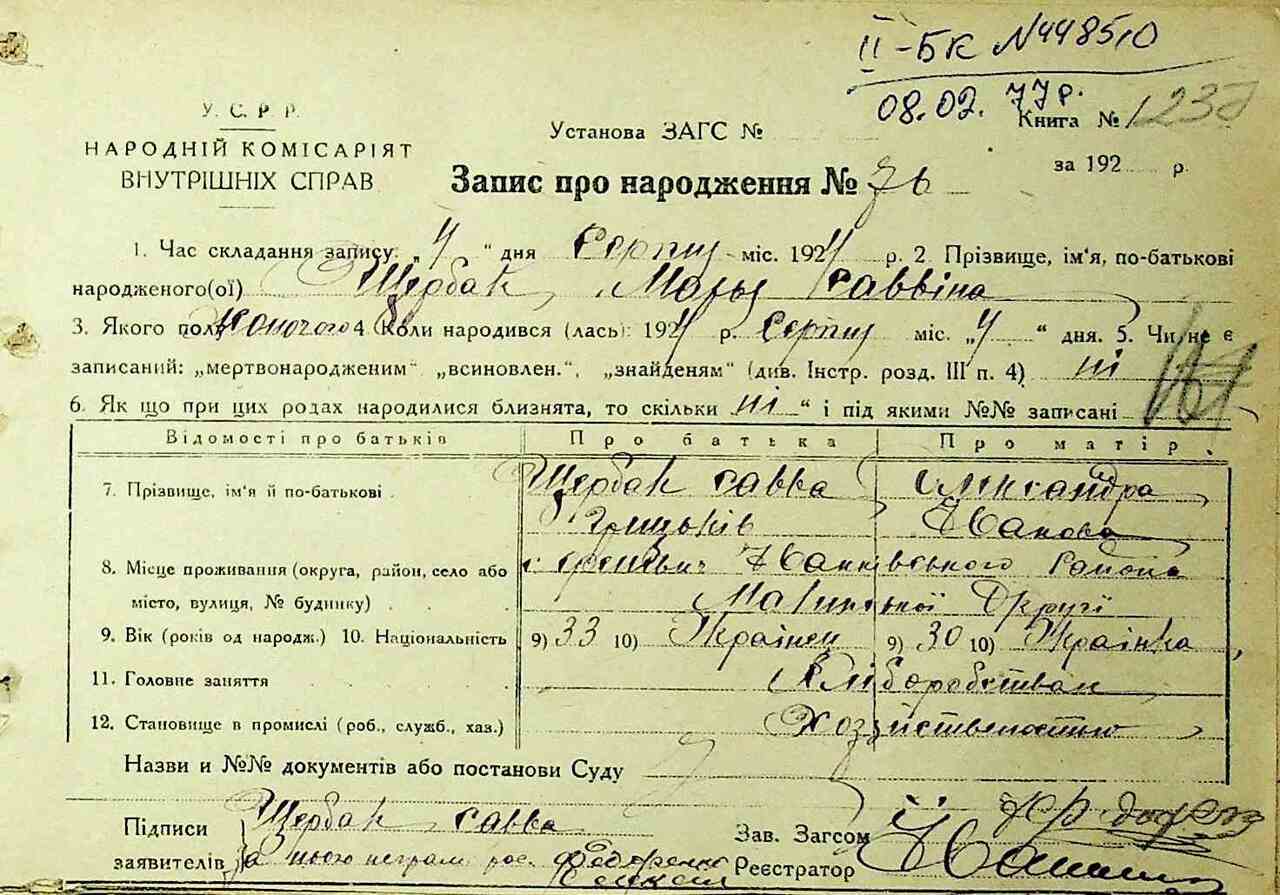 ІІ-БК №448510
08.02.77р.
У. С. Р. Р.
НАРОДНІЙ КОМІСАРІЯТ
ВНУТРІШНІХ СПРАВ
Установа ЗАГС №
Книга № 123
за 192 р.
Запис про народження № 76
1. Час складання запису: „4 “ дня Серпня міс. 1924 р. 2 Прізвище, ім'я, по-батькові
народженого(ої) Щербак Марья Саввіна
3. Якого полу женочого 4 Коли народився (лась): 1924 р. Серпня міс. „4 “ дня. 5. Чи не є
записаний: „мертвонародженим“ „всиновлен.“, „знайденям“ (див. Інстр. розд. III п. 4) ні
6. Як що при цих родах народилися близнята, то скільки ні “ і під якими №№ записані
Відомості про батьків Про батька Про матір
7. Прізвище, ім'я й по-батькові Щербак Савва Александра
Грицьків Іванова
8. Місце проживання (округа, район, село або с. Іванківського Района
місто, вулиця, № будинку) Малинської Округі
9. Вік (років од народж.) 10. Національність 9) 33 10) Українец 9) 30 10) Українка
11. Головне заняття Хліборобством
12. Становище в промислі (роб., служб., хаз.) Хозяйственостью
Назви и №№ документів або постанови Суду
Підписи Щербак Савва
заявителів За нього неграм. рос. Федоренко
Зав. Загсом
Реєстратор